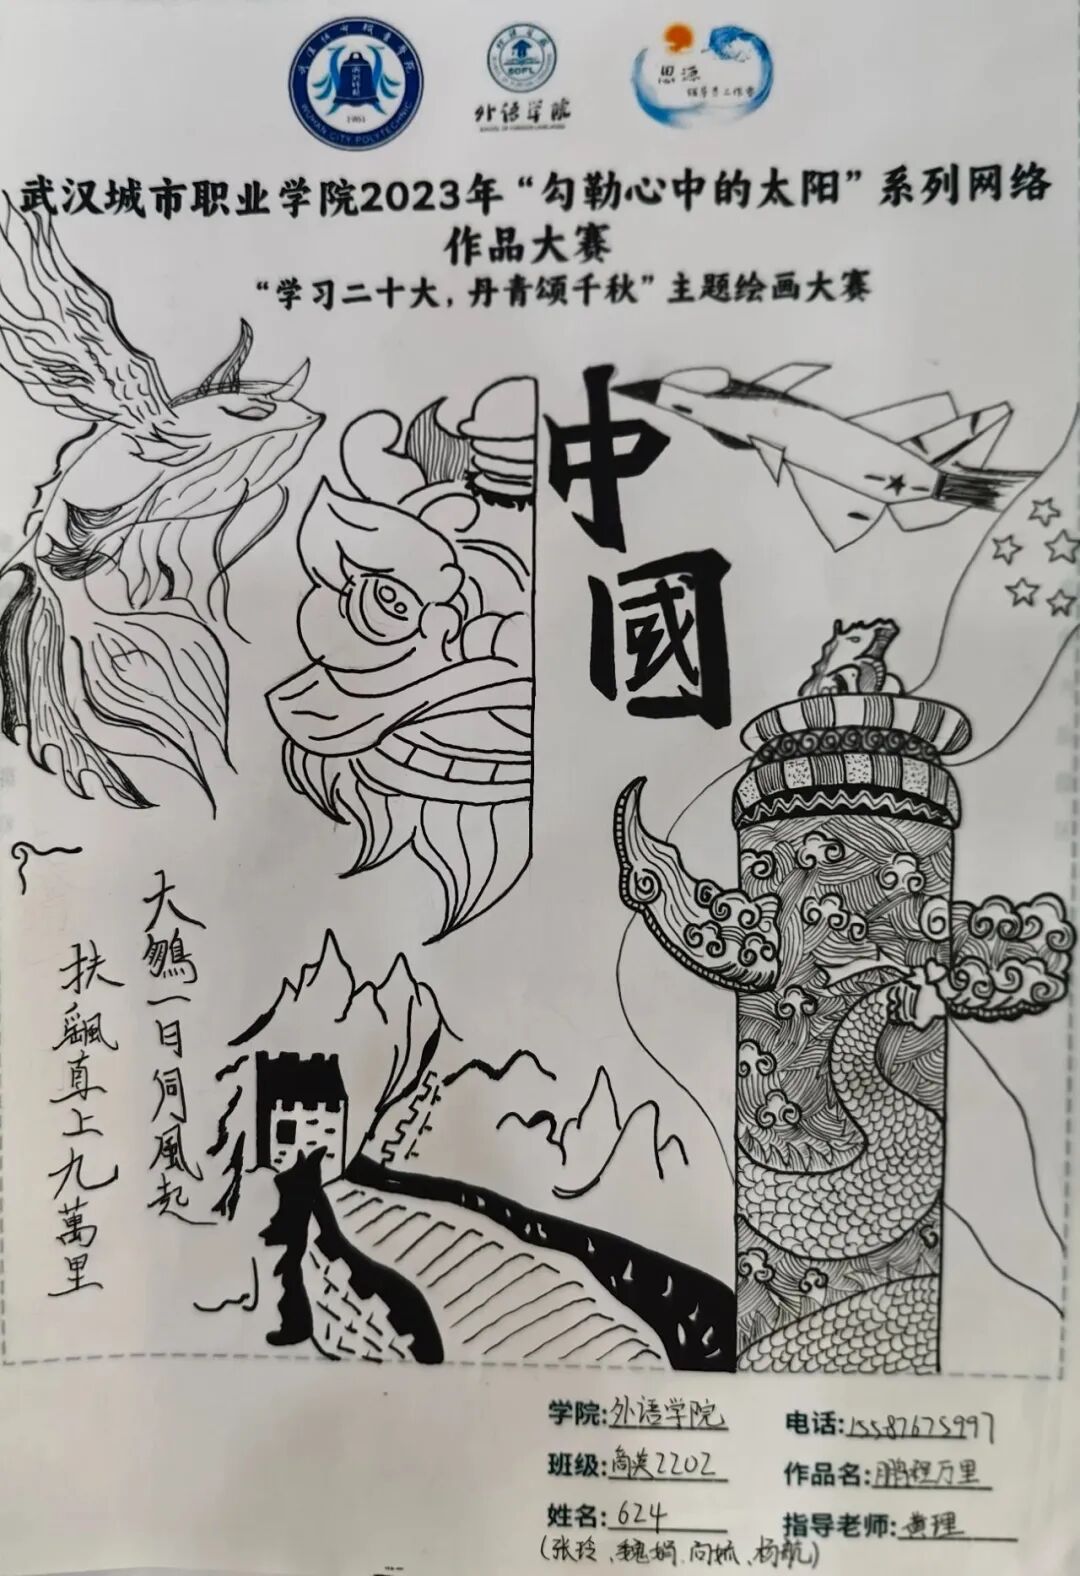 WUHAN CITY POLYTECHNIC
1961
SOFL
外语学院
SCHOOL OF FOREIGN LANGUAGES
思源
辅导员工作室
武汉城市职业学院2023年“勾勒心中的太阳”系列网络
作品大赛
“学习二十大，丹青颂千秋”主题绘画大赛
中
國
大鵬一日同風起
扶颻直上九萬里
学院:外语学院
电话:15587675997
班级:商英2202
作品名:鹏程万里
姓名:624
指导老师:黄理
(张玲、魏娟、向